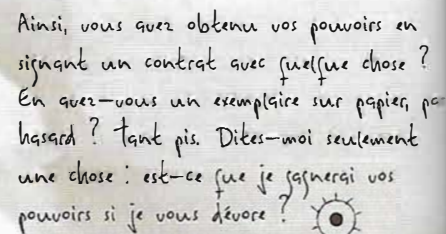 Ainsi, vous avez obtenu vos pouvoirs en
signant un contrat avec quelque chose ?
En avez-vous un exemplaire sur papier, pa
hasard ? Tant pis. Dites-moi seulement
une chose : est-ce que je gagnerai vos
pouvoirs si je vous dévore ?